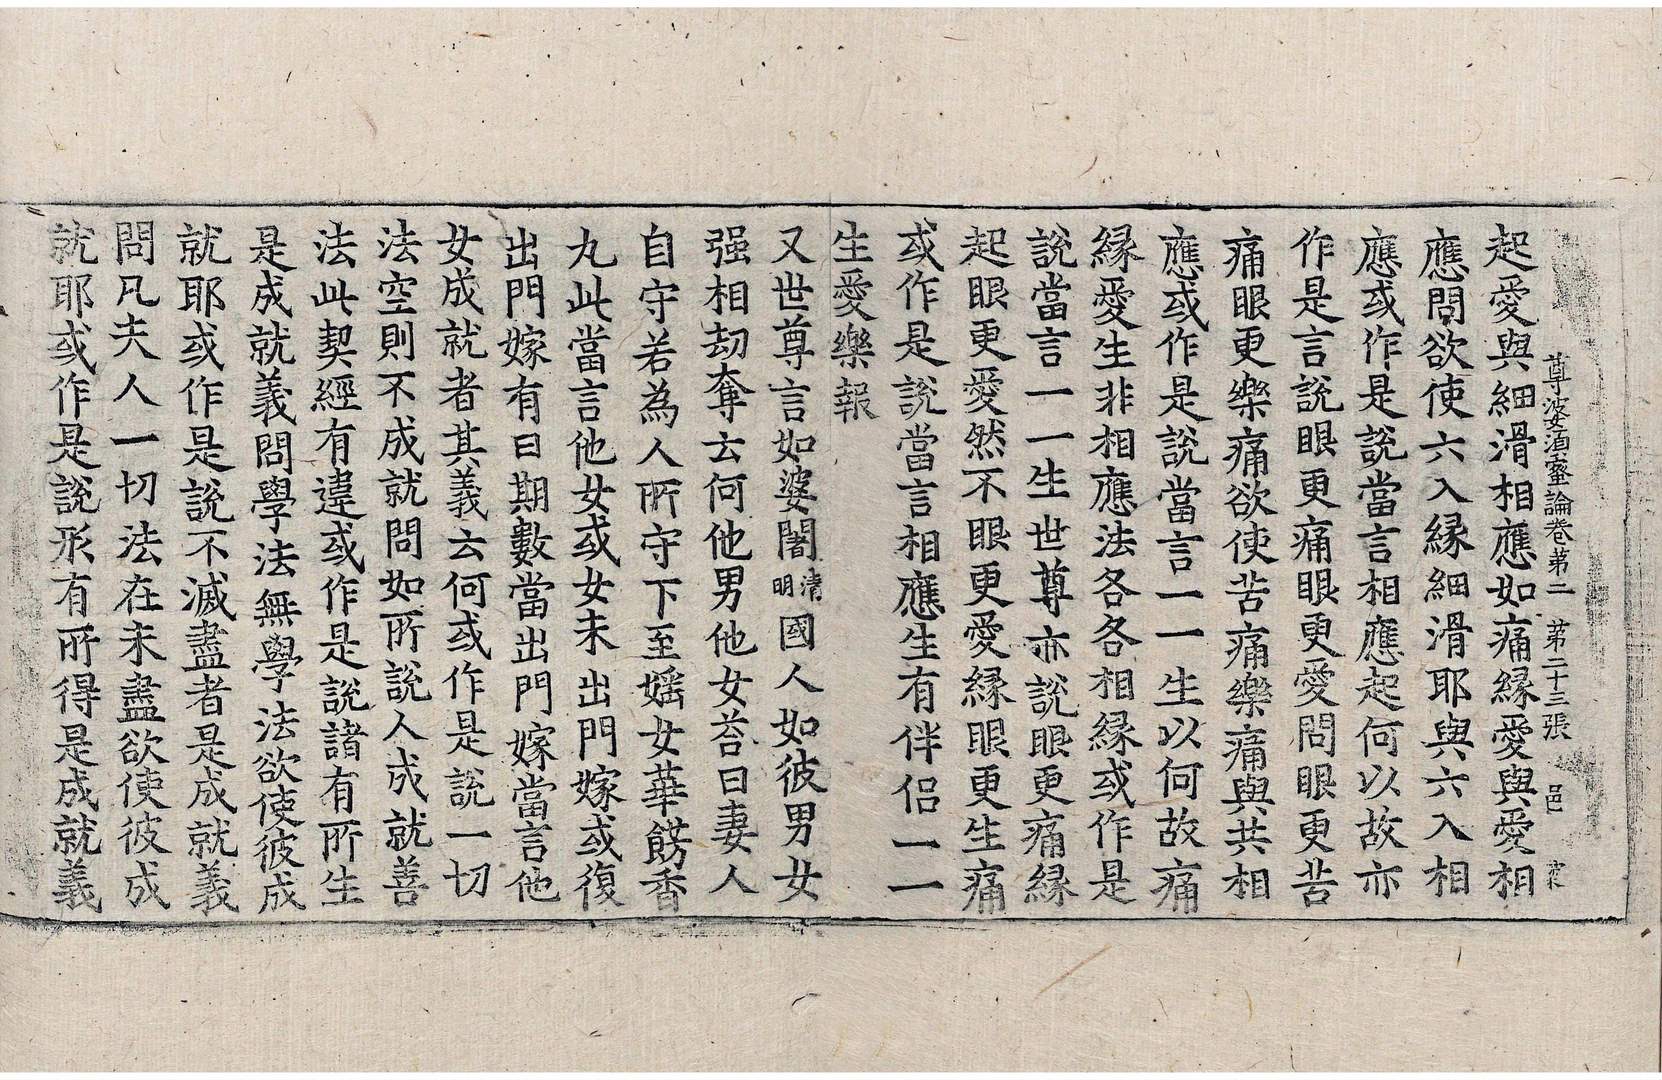 尊婆湏蜜論卷苐二 苐二十三張 邑
起愛與細滑相應如痛縁愛與愛相
應問欲使六入縁細滑耶與六入相
應或作是說當言相應起何以故亦
作是言說眼更痛眼更愛問眼更苦
痛眼更樂痛欲使苦痛樂痛與共相
應或作是說當言一一生以何故痛
縁愛生非相應法各各相縁或作是
說當言一一生世尊亦說眼更痛縁
起眼更愛然不眼更愛縁眼更生痛
或作是說當言相應生有伴侶一一
生愛樂報
又世尊言如婆闍清明國人如彼男女
强相刼奪云何他男他女荅曰妻人
自守若為人所守下至婬女華餝香
丸此當言他女或女未出門嫁或復
出門嫁有日期數當出門嫁當言他
女成就者其義云何或作是說一切
法空則不成就問如所說人成就善
法此契經有違或作是說諸有所生
是成就義問學法無學法欲使彼成
就耶或作是說不滅盡者是成就義
問凡夫人一切法在未盡欲使彼成
就耶或作是說形有所得是成就義